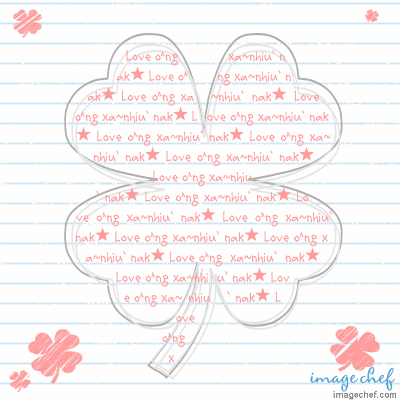 Love o^ng xa~nhiu` n
ak★ Love o^ng xa~nhiu` n
ak★ Love o^ng xa~nhiu` nak★ Love
o^ng xa~nhiu` nak★ Love o^ng xa~nhiu` nak
★ Love o^ng xa~nhiu` nak★ Love o^ng xa~
nhiu` nak★ Love o^ng xa~nhiu` nak★
Love o^ng xa~nhiu
nak★ Love o^ng xa~nhiu` nak★ Lo
ve o^ng xa~nhiu` nak★ Love o^ng xa~nhiu`
nak★ Love o^ng xa~nhiu` nak★ Love o^ng x
a~nhiu` nak★ Love o^ng xa~nhiu` nak★
Love o^ng xa~nhiu` nak★ Lov
e o^ng xa~nhiu` nak★ L
ove
o^ng
x
imagechef
imagechef.com